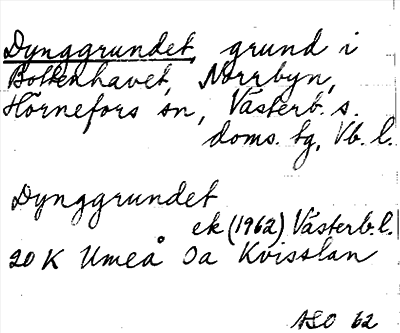 Dynggrundet, grund i
Bottenhavet, Norrbyn,
Hörnefors sn, Västerb. s.
doms. tg, Vb. l.
Dynggrundet
ek (1962) Västerb.l.
20 K Umeå 0a Kvisslan
ASO 62